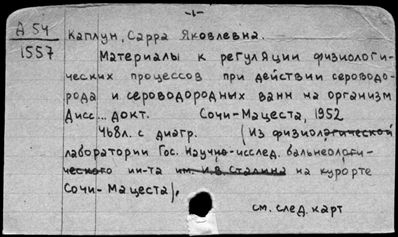 -1-
Д 54
1557
Каплун, Сарра Яковлевна.
Материалы к регуляции физиологи-
ческих процессов при действии сероводо-
рода и сероводородных ванн на организм
Дисс... докт. Сочи-Мацеста, 1952
468л. с диагр. (Из физиологической
лаборатории Гос. научно-исслед. бальнеологи-
ческого ин-та им. И.В. Сталина на курорте
Сочи-Мацеста).
см. след. карт